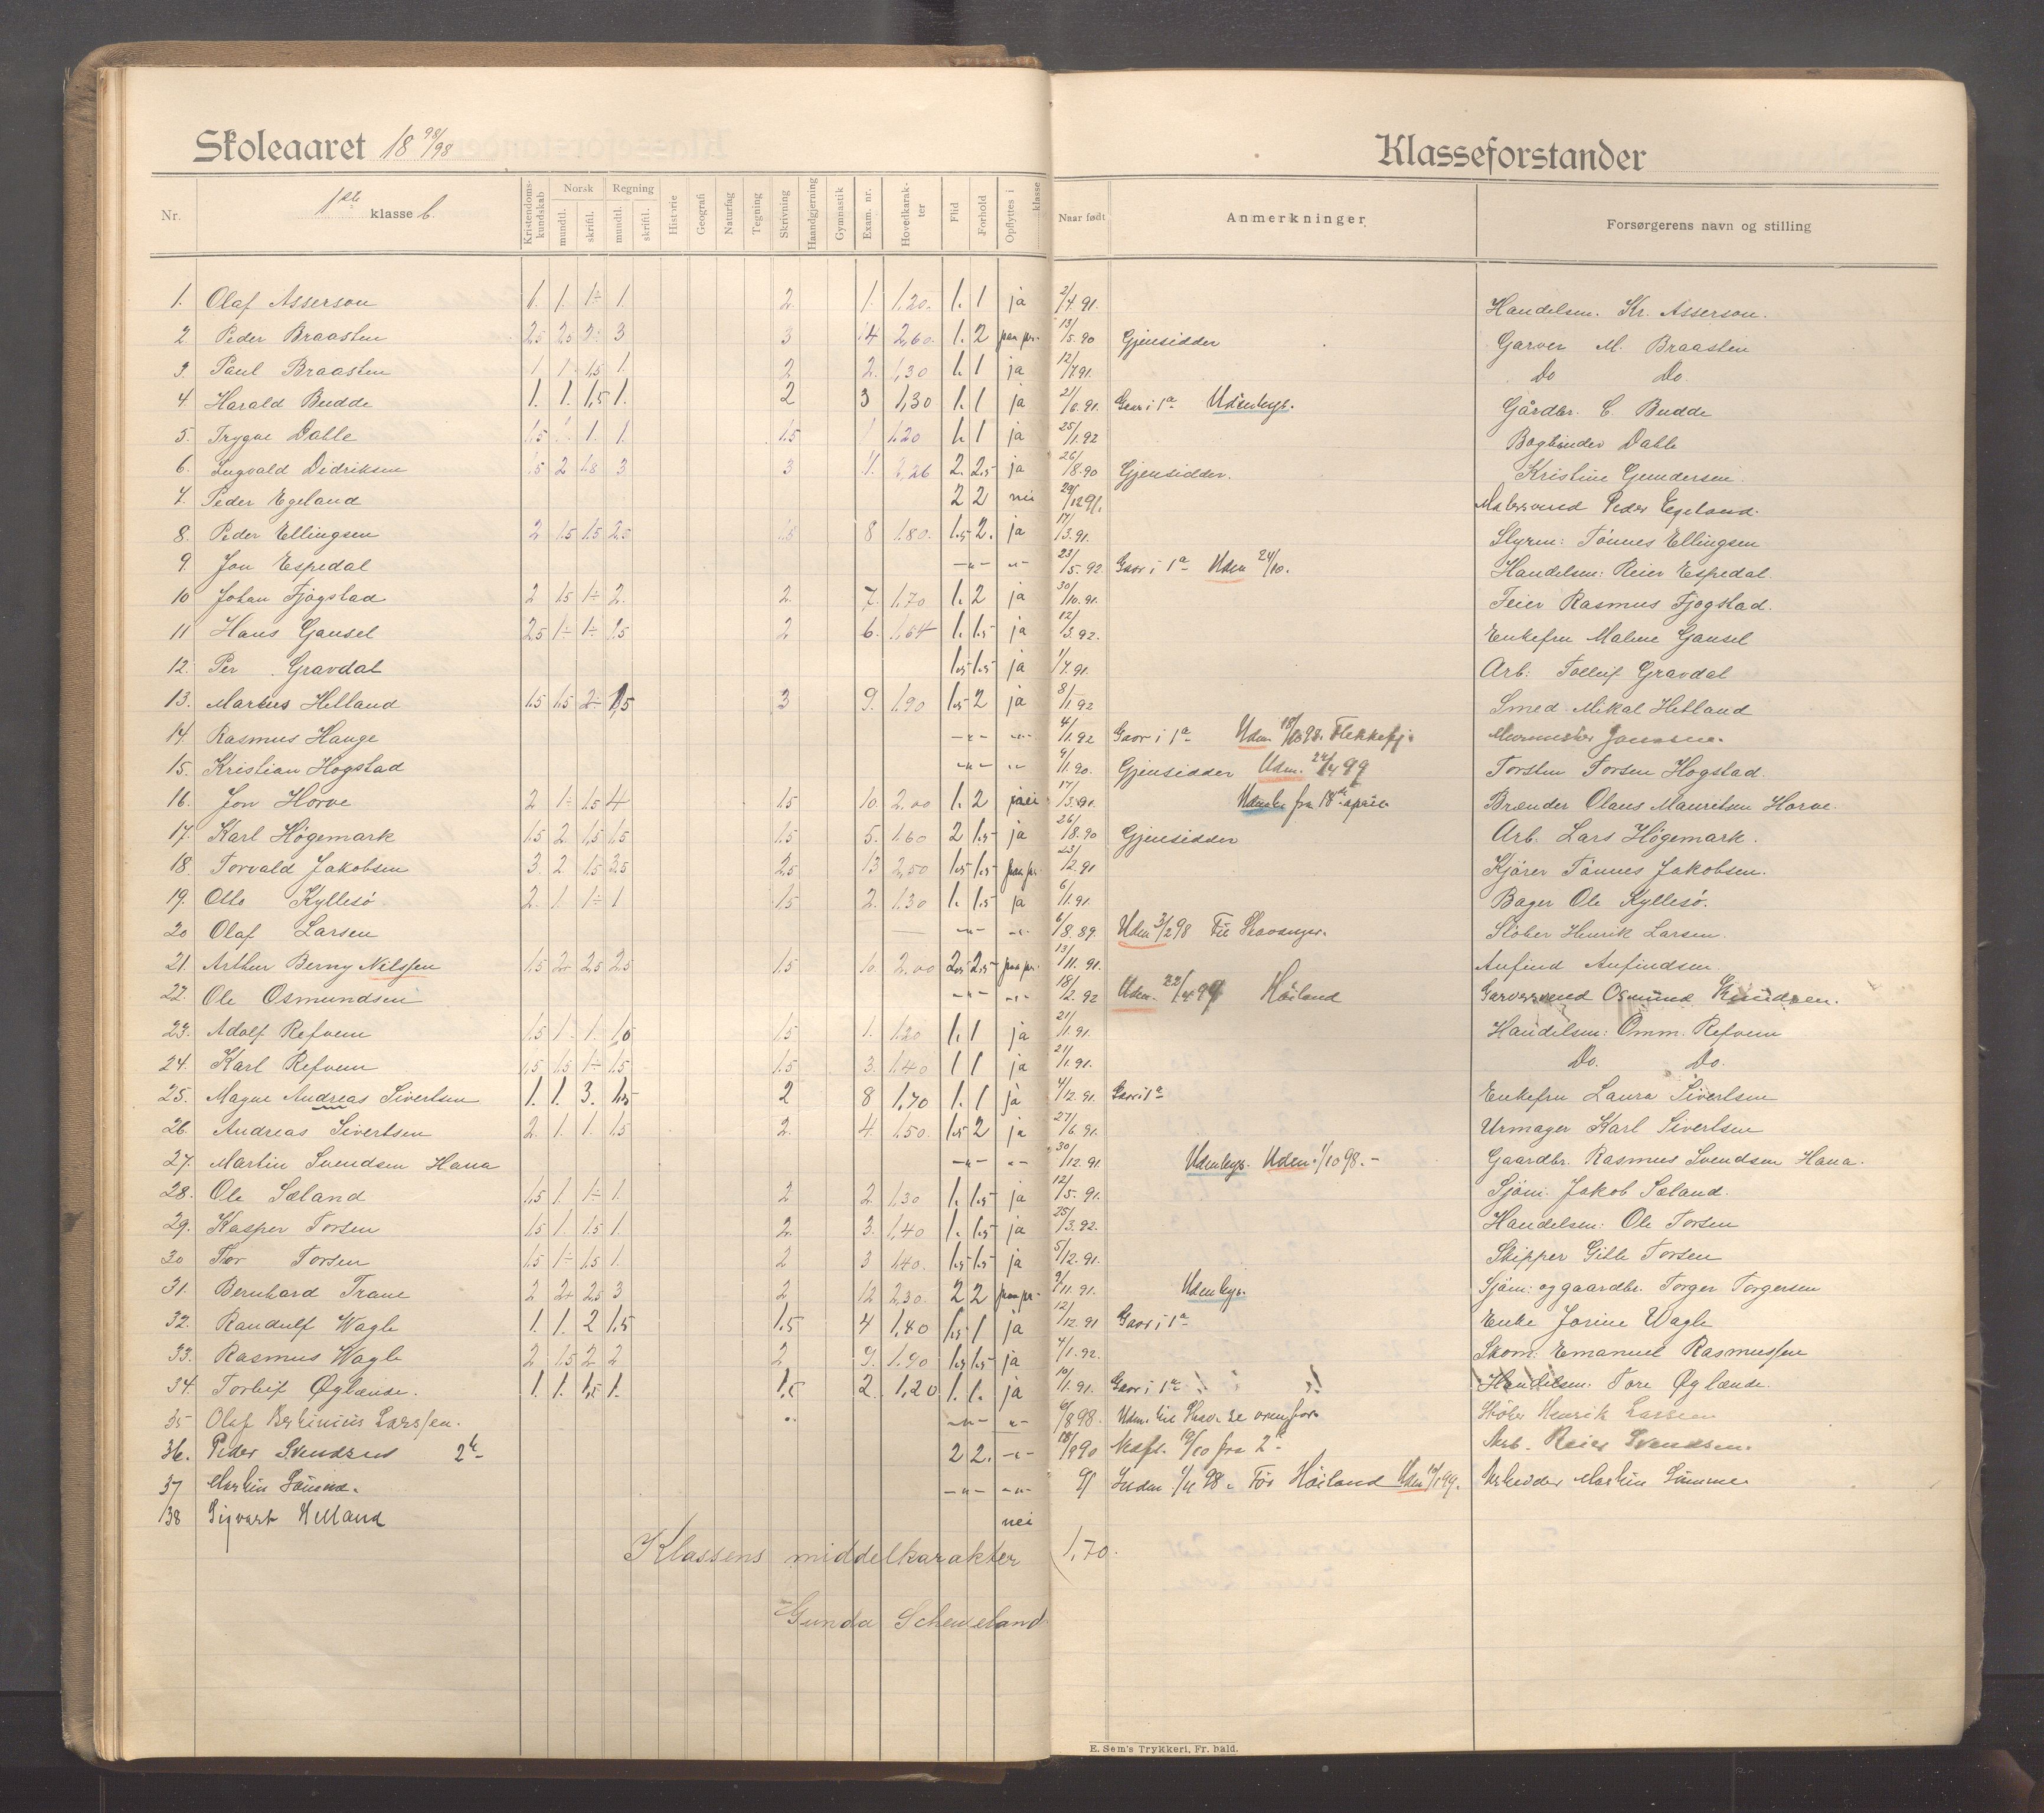 Skoleaaret 18 98/98
Klasseforstander
Nr. 1ste klasse b. Kristendomskundskab Norsk mundtl. skriftl. Regning mundtl. skriftl. Historie Geografi Naturfag Tegning Skrivning Haandgjerning Gymnastik Exam. nr. Hovedkarakter Flid Forhold Opflyttes i klasse Naar født Anmerkninger Forsørgerens navn og stilling
1. Olaf Asserson 1. 1. 1÷ 1. 2. 1. 1,20. 1. 1 ja 2/4.91. Handelsm. Kr. Asserson.
2 Peder Braasten 2,5 2,5 2÷ 3 3 14 2,60. 1. 2 paa pr. 13/5.90 Gjensidder Garver M. Braasten
3 Paul Braasten 1 1. 1,5 1. 2 2. 1,30 1. 1 ja 12/7.91. Do Do.
4. Harald Budde 1. 1. 1,5 1. 2 3 1,30 1. 1 ja 21/6.91. Gaar i 1a Udenbys. Gårdbr. C. Budde
5. Trygve Dahle 1,5 1. 1. 1,5 1 1,20 1. 1 ja 25/1.92 Bogbinder Dahle
6. Ingvald Didriksen 1,5 2 1,8 3 3 2,26 2. 2,5 ja 26/8.90 Gjensidder. Kristine Gundersen
7. Peder Egeland 2 2 nei 29/12 91. Malersvend Peder Egeland.
8. Peder Ellingsen 2 1,5 1,5 2,5 1,5 8 1,80. 1,5 2. ja 17/3.91. Styrm: Tønnes Ellingsen
9. Jon Espedal -"- -"- 23/5.92 Gaar i 1a Uden 24/10. Handelsm: Reier Espedal.
10 Johan Fjogstad 2 1,5 1÷ 2. 2. 7. 1,70 1. 2 ja 30/10.91. Feier Rasmus Fjogstad.
11 Hans Gausel 2,5 1÷ 1÷ 1,5 2 6. 1,64 1. 1,5 ja 12/3.92. Enkefru Malene Gausel
12. Per Gravdal 1,5 1,5 ja 1/7.91. Arb: Tollef Gravdal
13. Marius Helland 1,5 1,5 2÷ 1,5 3 9. 1,90 1,5 2 ja 8/1.92 Smed Mikal Hetland
14 Rasmus Hauge -"- -"- 4/1.92 Gaar i 1a Udm. 18/10 98. Flekkefj. Murmester
15. Kristian Hogstad -"- -"- 9/1.90. Gjensidder Udm. 24/4 99 Torsten Torsen Hogstad.
16. Jon Horve 2 1÷ 1,5 4 1,5 10. 2,00 1. 2 17/3.91. fra 18de april Brænder Olaus Mauritsen Horve.
17. Karl Høgemark 1,5 2. 1,5 1,5 1,5 5. 1,60 2 1,5 ja 26/8.90 Gjensidder Arb. Lars Høgemark.
18. Torvald Jakobsen 3. 2 1,5 3,5 2,5 13 2,50 1,5 1,5 paa pr. 23/2.91 Kjører Tønnes Jakobsen.
19. Otto Kyllesø. 2. 1 1÷ 1 1,5 2. 1,30 1. 1,5 ja 6/1.91. Bager Ole Kyllesø.
20 Olaf Larsen -"- -"- 6/8.89. Uden 3/2 98 Til Stavanger. Støber Henrik Larsen.
21. Arthur Berny Nilssen 1,5 2÷ 2,5 2,5 1,5 10. 2,00 2,5 2,5 paa pr. 13/11.91. Anfind Anfindsen.
22. Ole Osmundsen -"- -"- 18/2.92 Uden. 22/4 99 Høiland Garversvend Osmund Knudsen.
23. Adolf Refvem 1,5 1. 1. 1,0 1,5 1. 1,20 1. 1 ja 21/1.91. Handelsm: Omm. Refvem
24. Karl Refvem 1,5 1,5 1÷ 1,5 1,5 3. 1,40 1 1 ja 21/1.91. Do. Do.
25. Magne Andreas Sivertsen 1. 1. 3. 1,5 2 8 1,70 1. 1 ja 4/12.91. Gaar i 1a Enkefru Laura Sivertsen
26. Andreas Sivertsen 2. 1. 1. 1,5 2. 4. 1,50. 1,5 2 ja 27/6.91. Urmager Karl Sivertsen
27. Martin Svendsen Hana -"- -"- 30/12.91 Udenbys. Uden. 1/10 98.- Gaardbr. Rasmus Svendsen Hana.
28. Ole Sæland 1,5 1. 1÷ 1. 2 2. 1,30 1. 1,5 ja 12/5.91. Sjøm. Jakob Sæland.
29. Kasper Torsen 1,5 1. 1,5 1. 2. 3. 1,40 1. 1,5 ja 25/3.92. Handelsm: Ole Torsen
30 Thor Torsen 1,5 1÷ 1,5 1. 2 3 1,40. 1,5 1,5 ja 5/12.91. Skipper Gitle Torsen
31. Bernhard Trane 2 2÷ 2,5 3 2 12 2,30. 2 2 paa pr. 9/11.91. Udenbys. Sjøm: og gaardbr. Torger Torgersen
32. Randulf Wagle 1. 1. 2 1,5 1,5 4 1,40 1,5 1 ja 12/12.91 Gaar i 1a Enke Jorine Wagle
33. Rasmus Wagle 2 1,5 2 2 2 9. 1,90 1,5 1,5 ja 4/1.92. Skom: Emanuel Rasmussen
34. Torleif Øglænde. 1. 1. 1,5 1. 1,5 2. 1,20 1. 1. ja 10/1.91. Gaar i 1a Handelsm: Tore Øglænde.
35 Olaf Berhinius Larssen. -"- "- 6/8 98. Udm. til Stav. se ovenfor Støber Henrik Larsen
36. Peder Svendsen 2b 2 2. -"- 18/9 90 10/10 fra 2b Arb. Reier Svendsen.
37 Martin -"- -"- 91 Indm 1/11 98. Høiland Uden 10/1 99. Arbeider Martin
38 Sigvart Helland nei
Klassens middelkarakter 1,70.
Gunda
E. Sem's Trykkeri, Fr. hald.